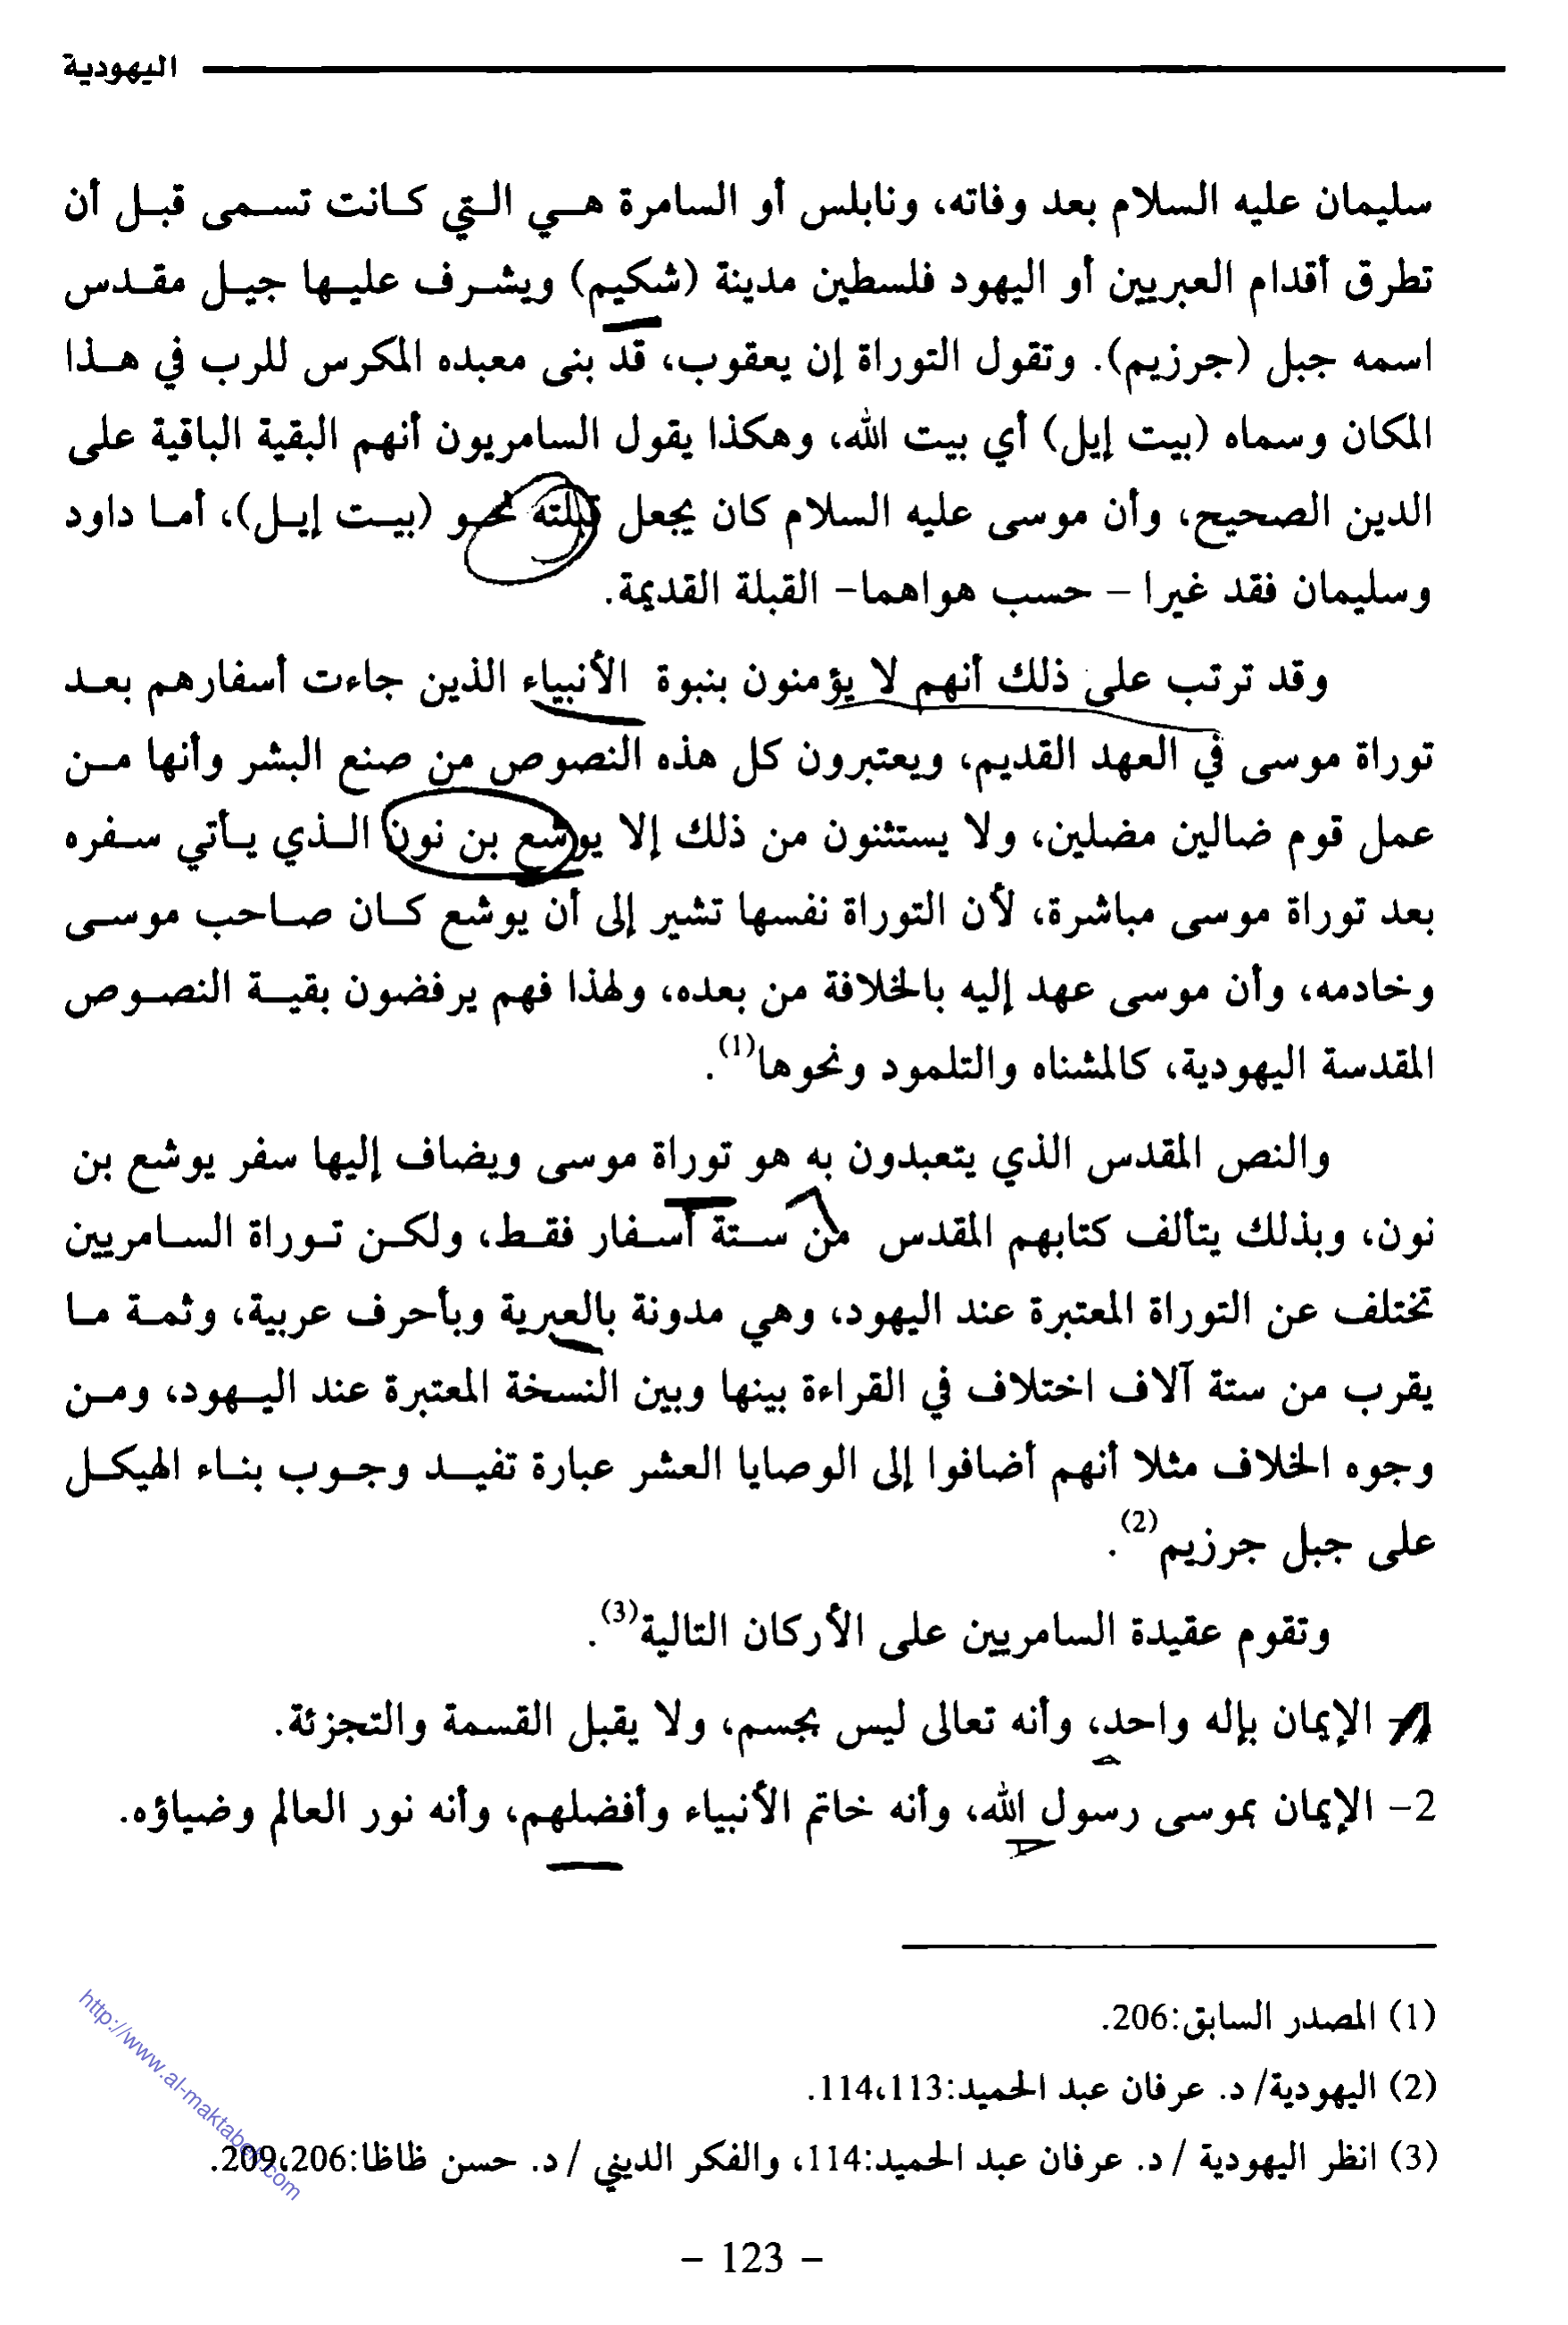 اليهودية
سليمان عليه السلام بعد وفاته، ونابلس أو السامرة هي التي كانت تسمى قبل أن
تطرق أقدام العبريين أو اليهود فلسطين مدينة (شكيم) ويشرف عليها جبل مقدس
اسمه جبل (جرزيم). وتقول التوراة إن يعقوب، قد بنى معبده المكرس للرب في هذا
المكان وسماه (بيت إيل) أي بيت الله، وهكذا يقول السامريون أنهم البقية الباقية على
الدين الصحيح، وأن موسى عليه السلام كان يجعل قبلته نحو (بيت إيل)، أما داود
وسليمان فقد غيرا – حسب هواهما- القبلة القديمة.
وقد ترتب على ذلك أنهم لا يؤمنون بنبوة الأنبياء الذين جاءت أسفارهم بعد
توراة موسى في العهد القديم، ويعتبرون كل هذه النصوص من صنع البشر وأنها من
عمل قوم ضالين مضلين، ولا يستثنون من ذلك إلا يوشع بن نون الذي يأتي سفره
بعد توراة موسى مباشرة، لأن التوراة نفسها تشير إلى أن يوشع كان صاحب موسى
وخادمه، وأن موسى عهد إليه بالخلافة من بعده، ولهذا فهم يرفضون بقية النصوص
المقدسة اليهودية، كالمشناه والتلمود ونحوها(1).
والنص المقدس الذي يتعبدون به هو توراة موسى ويضاف إليها سفر يوشع بن
نون، وبذلك يتألف كتابهم المقدس من ستة أسفار فقط، ولكن توراة السامريين
تختلف عن التوراة المعتبرة عند اليهود، وهي مدونة بالعبرية وبأحرف عربية، وثمة ما
يقرب من ستة آلاف اختلاف في القراءة بينها وبين النسخة المعتبرة عند اليهود، ومن
وجوه الخلاف مثلا أنهم أضافوا إلى الوصايا العشر عبارة تفيد وجوب بناء الهيكل
على جبل جرزيم(2).
وتقوم عقيدة السامريين على الأركان التالية(3).
1- الإيمان بإله واحد، وأنه تعالى ليس بجسم، ولا يقبل القسمة والتجزئة.
2- الإيمان بموسى رسول الله، وأنه خاتم الأنبياء وأفضلهم، وأنه نور العالم وضياؤه.
(1) المصدر السابق:206.
(2) اليهودية/ د. عرفان عبد الحميد:114،113.
(3) انظر اليهودية / د. عرفان عبد الحميد:114، والفكر الديني / د. حسن ظاظا:209،206.
http://www.al-maktabeh.com
- 123 -